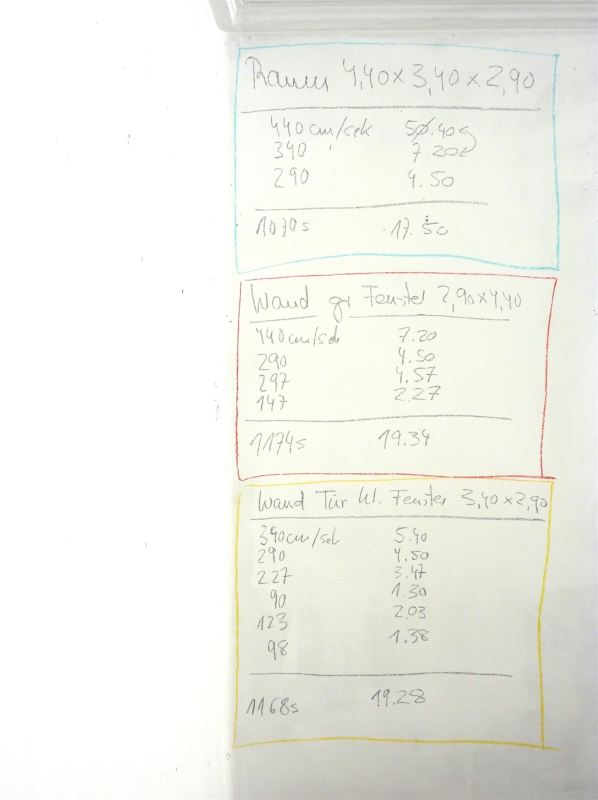 Raum 4,40 x 3,40 x 2,90
440 cm/sek 5.40
340 7 20
290 4.50
1070s 17.50
Wand gr. Fenster 2,90 x 4,40
440 cm/sek 7.20
290 4.50
297 4.57
147 2.27
1174s 19.34
Wand Tür kl. Fenster 3,40 x 2,90
340 cm/sek 5.40
290 4.50
227 3.47
90 1.30
123 2.03
98 1.38
1168s 19.28